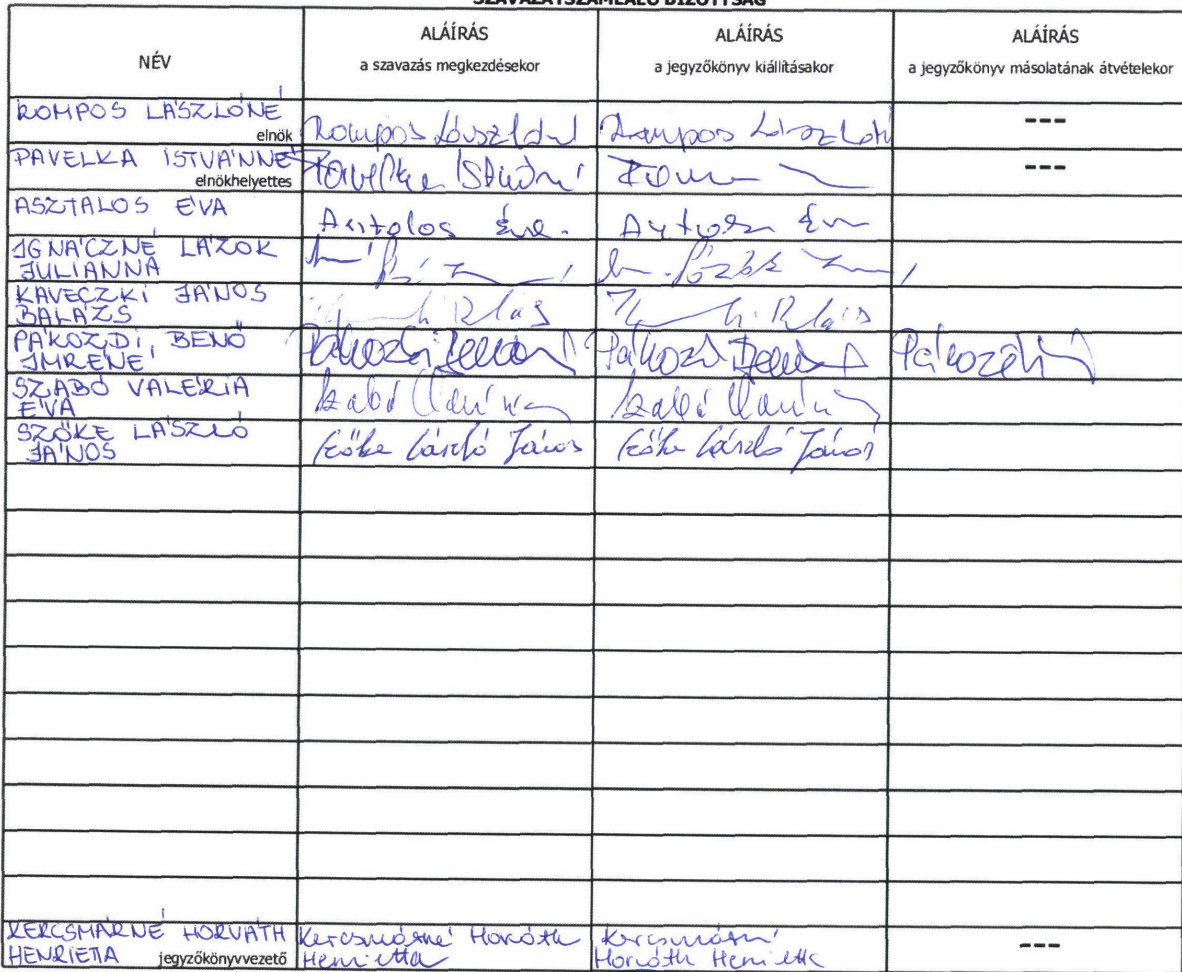 SZAVAZATSZÁMLÁLÓ BIZOTTSÁG
NÉV
ALÁÍRÁS
a szavazás megkezdésekor
ALÁÍRÁS
a jegyzőkönyv kiállításakor
ALÁÍRÁS
a jegyzőkönyv másolatának átvételekor
ROMPOS LÁSZLÓNÉ
elnök Rompos Lászlóné Rompos Lászlóné ---
PAVELKA ISTVÁNNÉ
elnökhelyettes Pavelka ---
ASZTALOS ÉVA
Asztalos Éva
IGNÁCZNÉ LÁZOK
JULIANNA
KAVECZKI JÁNOS
BALÁZS
PÁKOZDI BENŐ
IMRÉNÉ Pákozdi Pákozdi Pákozdi
SZABÓ VALÉRIA
ÉVA Szabó Szabó
SZŐKE LÁSZLÓ
JÁNOS Szőke László János Szőke László János
KERCSMÁRNÉ HORVÁTH Kercsmárné Horváth Kercsmárné
HENRIETTA jegyzőkönyvvezető Henrietta Horváth Henrietta ---